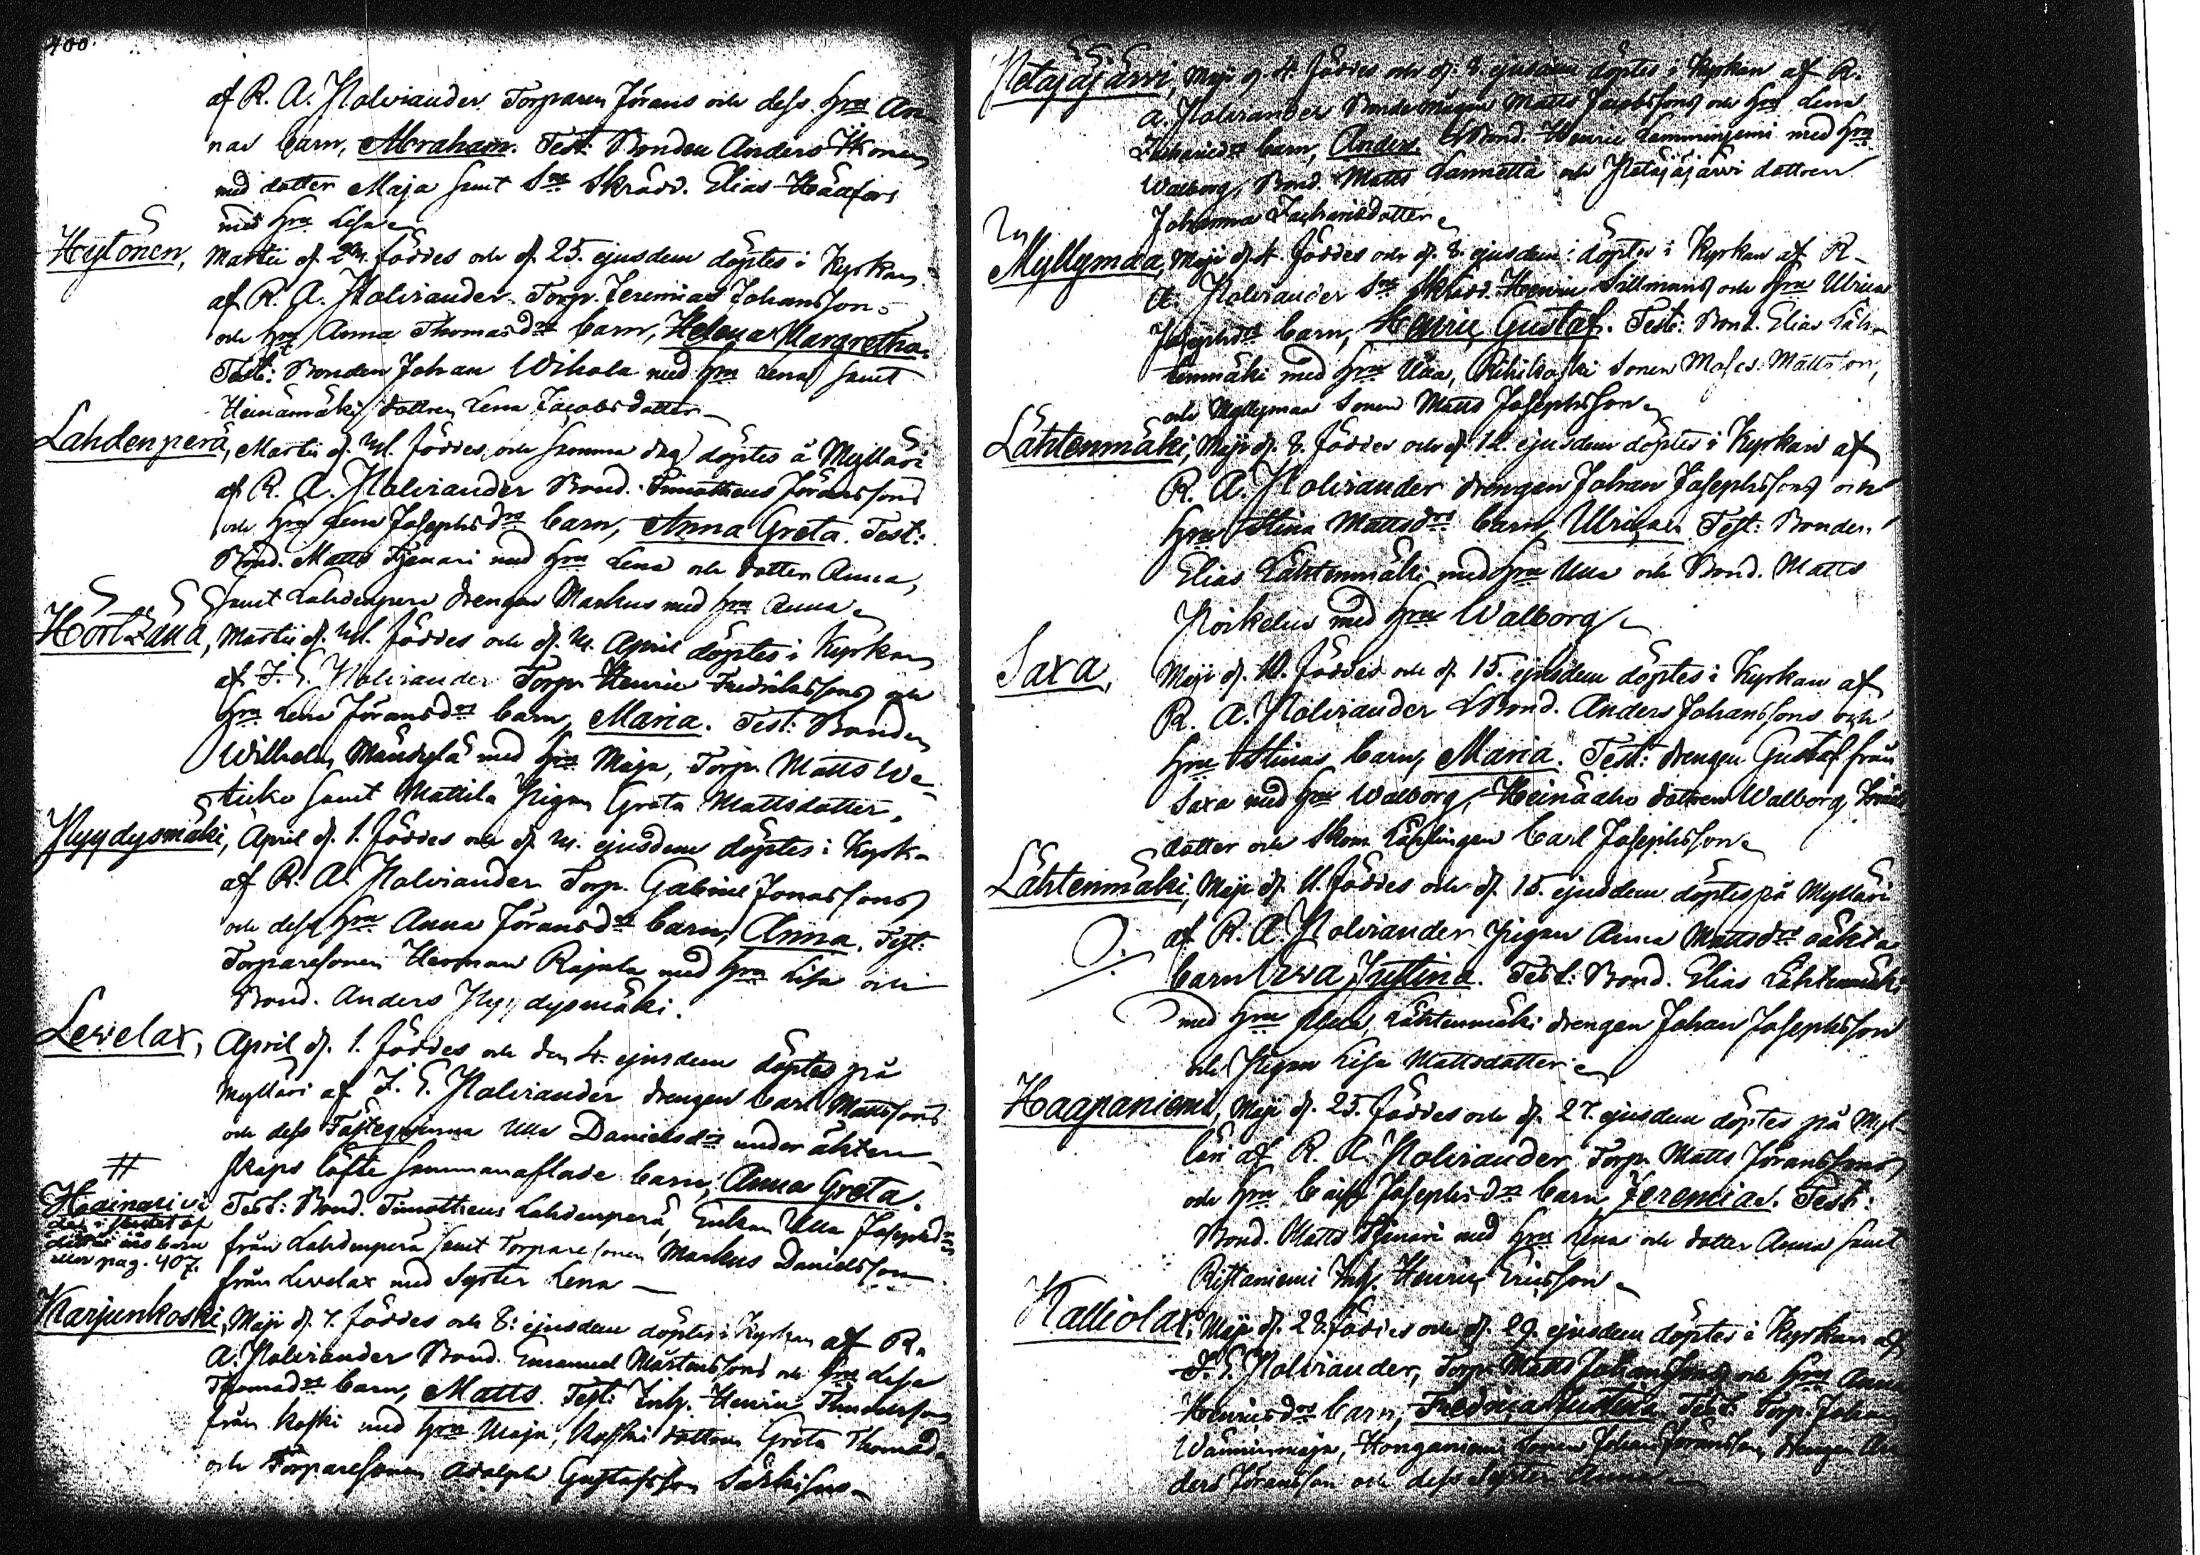 400.
af R. A. Polviander Torparen Jörans och dess hru An-
nas barn, Abraham. Test: Bonden Anders Ikonen
med dotter Maja samt Sn Skrädd. Elias Häafors
med hru Lisa
Hytönen, Martii d. 24. föddes och d. 25. ejusdem döptes i Kyrkan
af R. A. Polviander Torp. Jeremias Johansson
och hru Anna Thomasdrs barn, Helena Margretha.
Test: Bonden Johan Wihola med hru Lena samt
Heinämäki dottren Lena Jacobsdotter
Lahdenperä, Martii d. föddes och samma dag döptes å Mylläri
af R. A. Polviander Bond. Timotheus Jöranssons
och hru Lena Josephsdrs barn, Anna Greta. Test:
Bond. Matts med hru Lena och dotter Anna,
samt Lahdenperä drengen Markus med hru Anna
Martii d. föddes och d. April döptes i Kyrkan
af J. E. Polviander Torp. Henric Fredrikssons och
hru Lena Jöransdrs barn, Maria. Test: Bonden
Wilhelm Mändylä med hru Maja, Torp. Matts We-
samt Mattila Pigan Greta Mattsdotter.
Pyydysmäki, April d. 1. föddes och d. 4. ejusdem döptes i Kyrk-
af R. A. Polviander Torp. Gabriel Jonassons
och dess hru Anna Jöransdrs barn, Anna. Test:
Torparesonen Herman Rajala med hru Lisa och
Bond. Anders Pyydysmäki.
Levelax, April d. 1. föddes och den 4. ejusdem döptes på
Mylläri af J. E. Polviander drengen Carl Mattssons
och dess Fästeqvinna Ulla Danielsdrs under äkten-
skaps löfte sammanaflade barn, Anna Greta.
#
Test: Bond. Timotheus Lahdenperä, Enkan Ulla Josephsdr
från Lahdenperä samt Torparesonen Markus Danielsson
från Levelax med Syster Lena
pag. 407.
Karjunkoski, Maji d. 7. föddes och 8: ejusdem döptes i Kyrkan af R.
A. Polviander Bond. Emanuel Mårtenssons och hru Lisa
Thomasdrs barn, Matts. Test: Inh. Henric
från Koski med hru Maja, Koski dottren Greta Thomasd.
och Torparesonen Adolph Gustafsson
Petäjäjärvi, Maji d. 4. föddes och d. 8. ejusdem döptes i Kyrkan af R.
A. Polviander Bondemågen Matts Jacobssons och hru Lena
Zachariedrs barn, Anders. Bond. Henric Lemminjemi med hru
Walborg, Bond. Matts Lannetta och Petäjäjärvi dottren
Johanna Zachariedotter
Myllymaa, Maji d. 4. föddes och d. 8. ejusdem döptes i Kyrkan af R.
A. Polviander Sn Skrädd. Henric Sillmans och hru Ulrica
Josephsdrs barn, Henric Gustaf. Test: Bond. Elias Läh-
tenmäki med hru Ulla, sonen Moses Mattsson,
och Myllymaa sonen Matts Josephsson
Lähtenmäki, Maji d. 8. föddes och d. 12. ejusdem döptes i Kyrkan af
R. A. Polviander drengen Johan Josephssons och
hru Stina Mattsdrs barn, Ulrica. Test: Bonden
Elias Lähtenmäki med hru Ulla och Bond. Matts
med hru Walborg
Saxa, Maji d. 10. föddes och d. 15. ejusdem döptes i Kyrkan af
R. A. Polviander Bond. Anders Johanssons och
hru Stinas barn, Maria. Test: drengen Gustaf från
Saxa med hru Walborg, Heinäaho dottren Walborg
dotter och Skom. Lärlingen Carl Josephsson
Lähtenmäki, Maji d. 11. föddes och d. 15. ejusdem döptes på Mylläri
af R. A. Polviander Pigan Anna Mattsdrs oäkta
barn Eva Justina. Test: Bond. Elias Lähtenmäki
med hru Ulla, Lähtenmäki drengen Johan Josephsson
och Pigan Lisa Mattsdotter
Haapaniemi, Maji d. 25. föddes och d. 27. ejusdem döptes på Myl-
läri af R. A. Polviander Torp. Matts Jöranssons
och hru Caisa Josephsdrs barn, Jeremias. Test:
Bond. Matts med hru Lena och dotter Anna samt
Ristaniemi Inh. Henric Ericsson
Kalliolax, Maji d. 28. föddes och d. 29. ejusdem döptes i Kyrkan af
J. E. Polviander, Torp. Matts Johanssons och hru Anna
Henricsdrs barn, Fredrica Justina. Test: Torp. Johan
Wäninmaja, Honganiemi sonen Johan Jöransson, drengen An-
ders Jöransson och dess Syster Anna